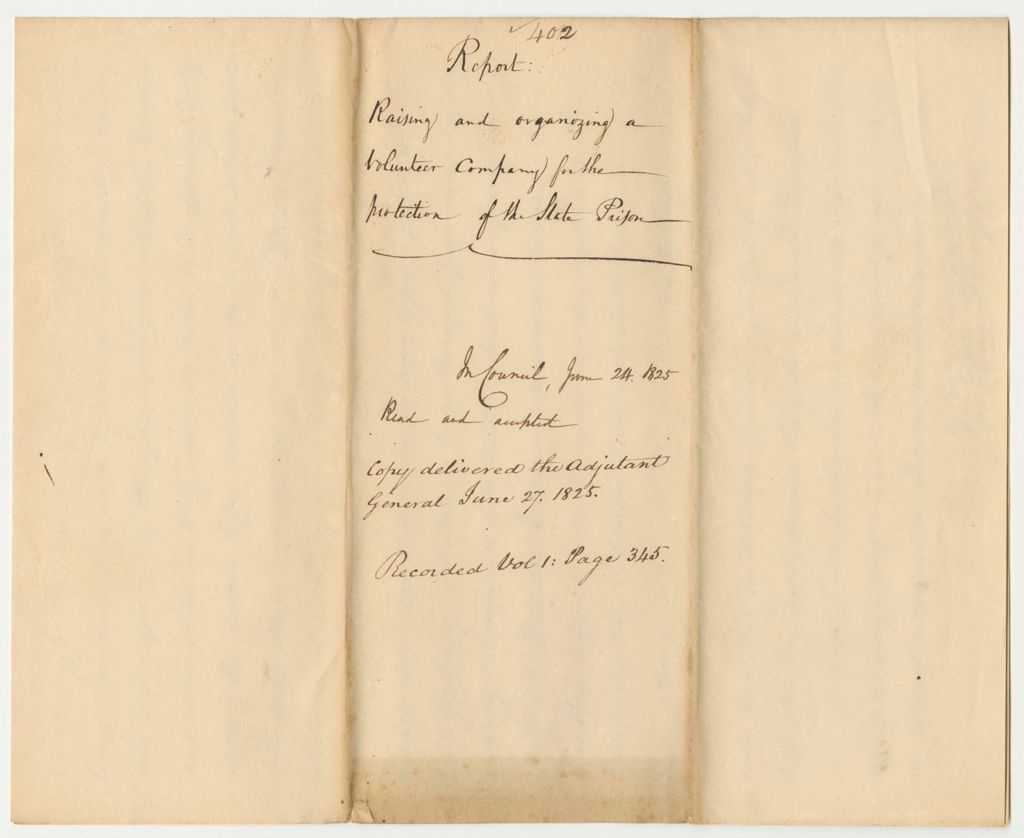 402
Report:
Raising and organizing a
Volunteer Company for the
protection of the State Prison
In Council, June 24. 1825
Read and accepted
Copy delivered the Adjutant
General June 27. 1825.
Recorded Vol 1: Page 345.